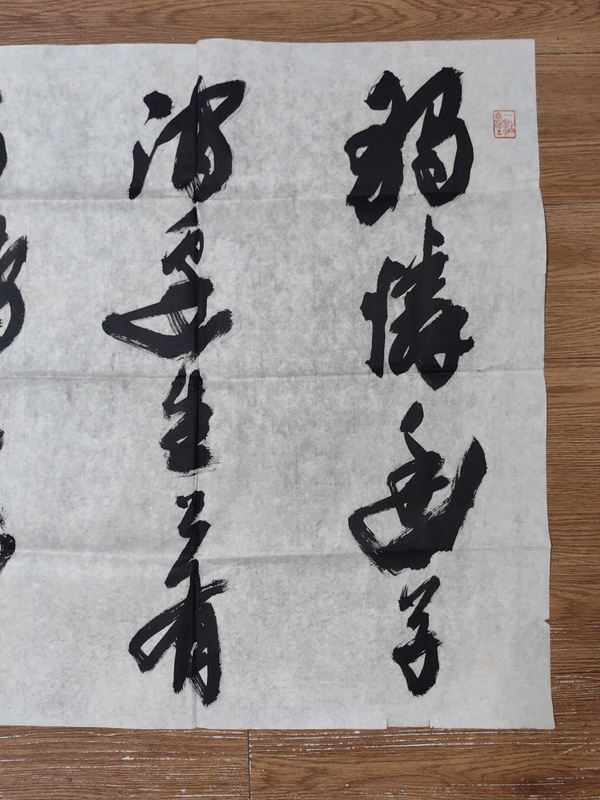 獨憐幽草
澗邊生上有